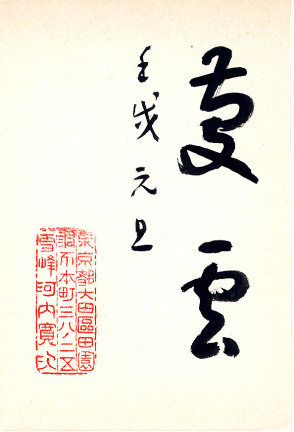 慶雲
壬戌元旦
東京都大田區田園
調布本町三八ノ二五
雪峰河内寛次